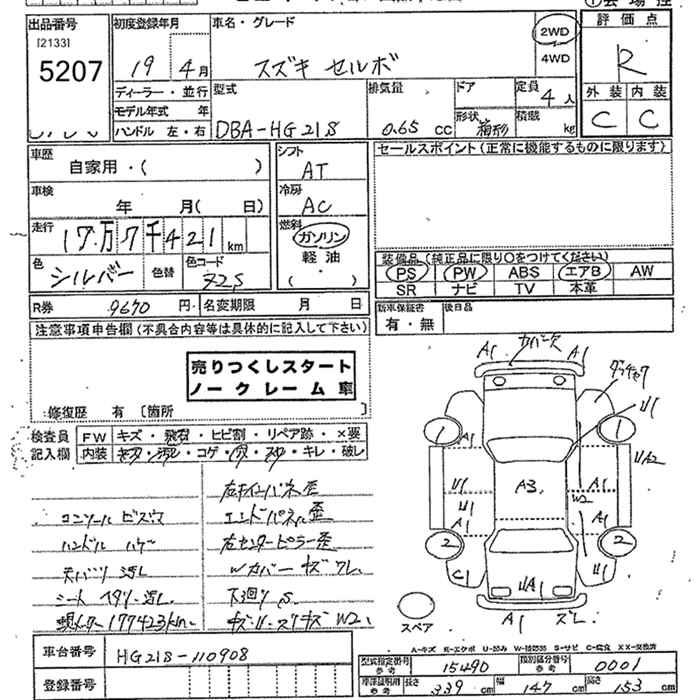 出品番号 初度登録年月 車名・グレード 2WD 4WD 評価点
[2133]
5207
19年4月
スズキ セルボ
R
ディーラー・並行 型式 排気量 ドア 定員 4人 外装 内装
モデル年式 年
ハンドル 左・右 DBA-HG21S 0.65 cc 形状 箱形 積載 kg C C
車歴 自家用・( )
シフト AT
セールスポイント(正常に機能するものに限ります)
車検 年 月( 日)
冷房 AC
走行 17万7千421km
燃料 ガソリン 軽油
色 シルバー 色替 色コード Z2S
装備品(純正品に限り○をつけてください)
PS PW ABS エアB AW
SR ナビ TV 本革
R券 9670円 名変期限 月 日
新車保証書 有・無 後日品
注意事項申告欄(不具合内容等は具体的に記入して下さい)
売りつくしスタート
ノークレーム車
修復歴 有 [箇所 ]
検査員 FW キズ・飛石・ヒビ割・リペア跡・×要
記入欄 内装 キズ・汚れ・コゲ・穴・スリ・キレ・破レ
コンソール ビス穴
エンドパネル歪
ハンドル ハゲ
右センターピラー歪
天バリ 汚レ
Wカバー キズ ワレ
シート ヘタリ・汚レ
下廻り S
現メーター177423km
W2
A1 A1
1 A1 U1
U1 A3 W2 UA2
U1
A1 A1
2 2
C1 UA1 U1
A1 ズレ
スペア
A-キズ E-エクボ U-凹み W-補修跡 S-サビ C-腐食 XX-交換済
車台番号 HG21S-110908
登録番号
型式指定番号 参考 15490 類別区分番号 参考 0001
車庫証明用 参考 長さ 339cm 幅 147cm 高さ 153cm